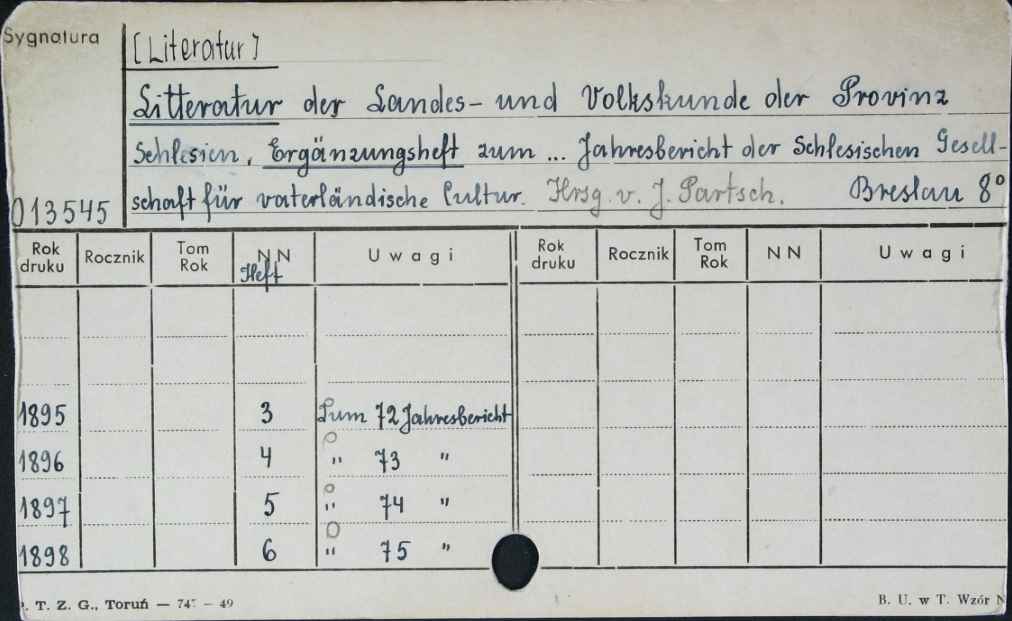 Sygnatura
[Literatur]
Litteratur der Landes- und Volkskunde der Provinz
Schlesien, Ergänzungsheft zum ... Jahresbericht der Schlesischen Gesell-
schaft für vaterländische Cultur. Hrsg. v. J. Partsch. Breslau 8°
013545
Rok druku Rocznik Tom Rok NN Heft Uwagi Rok druku Rocznik Tom Rok NN Uwagi
1895 3 Zum 72 Jahresbericht
1896 4 " 73 "
1897 5 " 74 "
1898 6 " 75 "
. T. Z. G., Toruń — 49 B. U. w T. Wzór